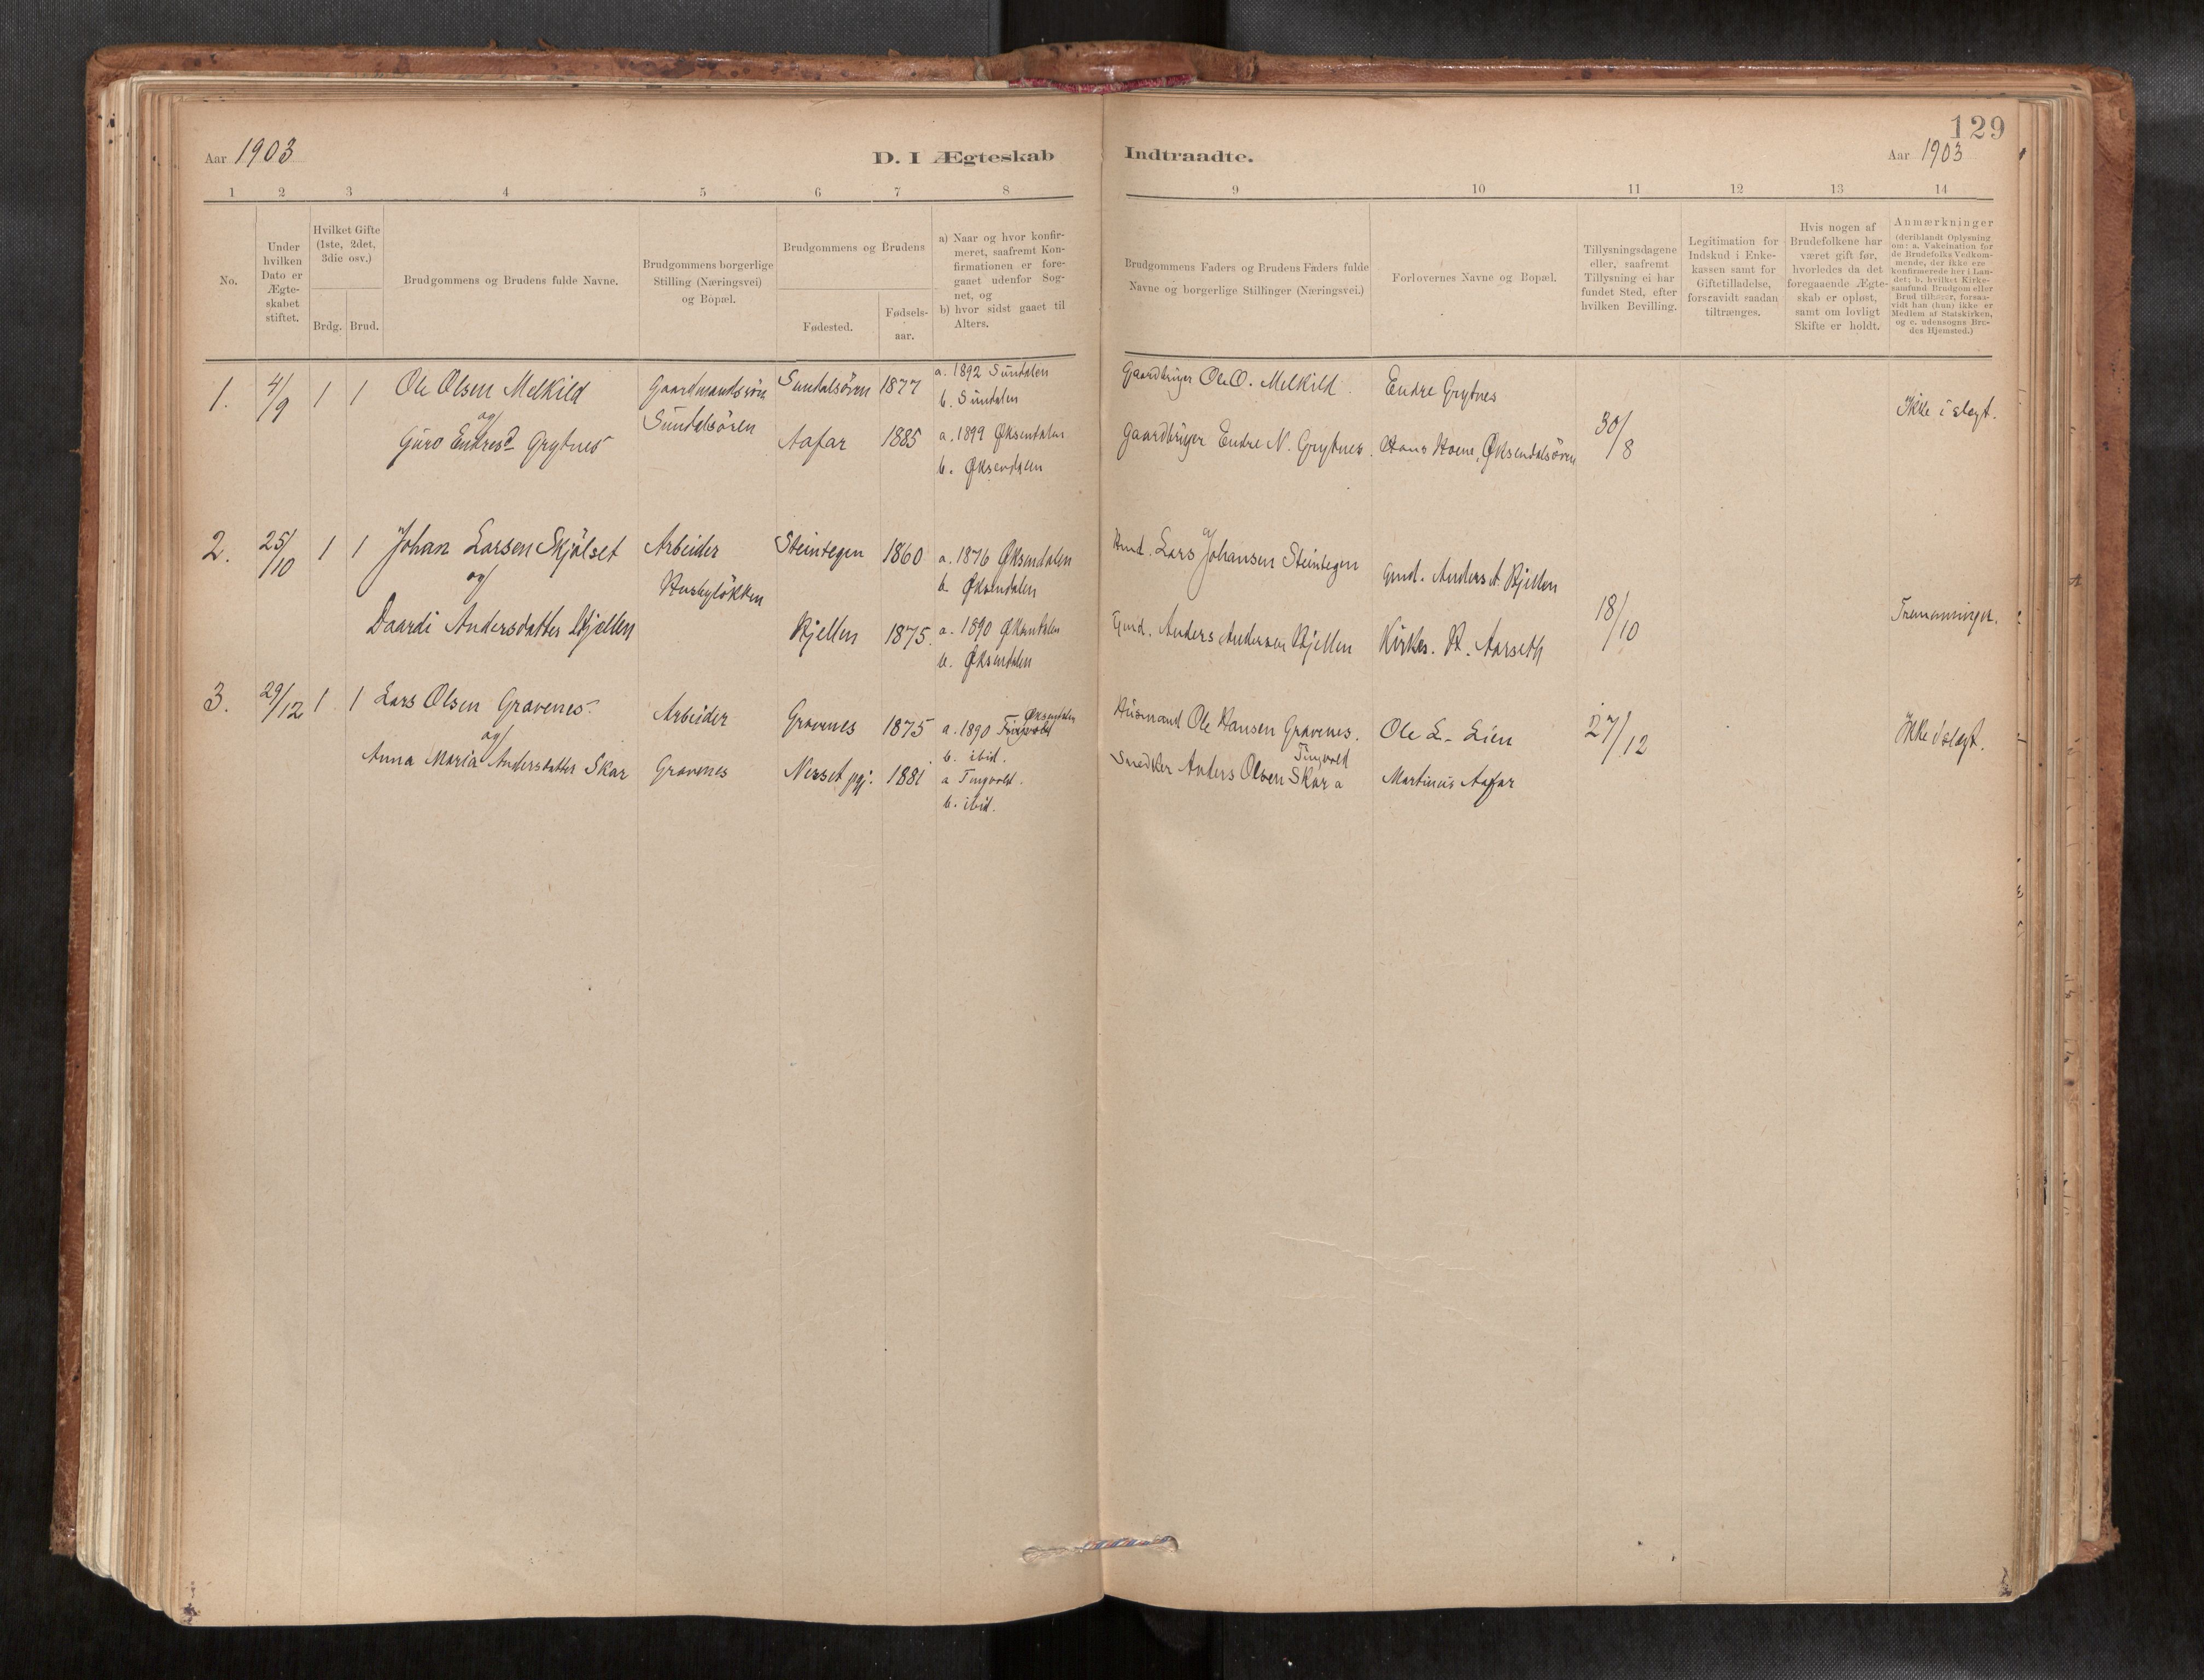 129
Aar 1903
D. I Ægteskab
Indtraadte.
Aar 1903
1 2 3 4 5 6 7 8
9 10 11 12 13 14
No.
Under
hvilken
Dato er
Ægte-
skabet
stiftet.
Hvilket Gifte
(1ste, 2det,
3die osv.)
Brdg. Brud.
Brudgommens og Brudens fulde Navne.
Brudgommens borgerlige
Stilling (Næringsvei)
og Bopæl.
Brudgommens og Brudens
Fødested.
Fødsels-
aar.
a) Naar og hvor konfir-
meret, saafremt Kon-
firmationen er fore-
gaaet udenfor Sog-
net, og
b) hvor sidst gaaet til
Alters.
Brudgommens Faders og Brudens Faders fulde
Navne og borgerlige Stillinger (Næringsvei.)
Forlovernes Navne og Bopæl.
Tillysningsdagene
eller, saafremt
Tillysning ei har
fundet Sted, efter
hvilken Bevilling.
Legitimation for
Indskud i Enke-
kassen samt for
Giftetilladelse,
forsaavidt saadan
tiltrænges.
Hvis nogen af
Brudefolkene har
været gift før,
hvorledes da det
foregaaende Ægte-
skab er opløst,
samt om lovligt
Skifte er holdt.
Anmærkninger
(deriblandt Oplysning
om: a. Vakcination for
de Brudefolks Vedkom-
mende, der ikke ere
konfirmerede her i Lan-
det; b. hvilket Kirke-
samfund Brudgom eller
Brud tilhører, forsaa-
vidt han (hun) ikke er
Medlem af Statskirken,
og c. udensogns Bru-
des Hjemsted.)
1. 4/9 1 1 Ole Olsen Melkild
og
Guro Endresd Grytnes
Gaardmandssøn
Sundalsøren
Sundalsøren 1877
Aafar 1885
a. 1892 Sundalen
b. Sundalen
a. 1899 Øksendalen
b. Øksendalen
Gaardbruger Ole O. Melkild.
Gaardbruger Endre N. Grytnes.
Endre Grytnes
Hans Hoem, Øksendalsøren
30/8
Ikke i slegt.
2. 25/10 1 1 Johan Larsen Skjølset
og
Daardi Andersdatter Kjellen
Arbeider
Husbyløkken
Steintegen 1860
Kjellen 1875.
a. 1876 Øksendalen
b. Øksendalen
a. 1890 Øksendalen
b. Øksendalen
Hmd. Lars Johansen Steintegen
Gmd. Anders Andersen Kjellen
Gmd. Anders A. Kjellen
Kirkes. H. Aarseth
18/10
Tremenninger.
3. 29/12 1 1 Lars Olsen Gravenes
og
Anna Maria Andersdatter Skar
Arbeider
Gravenes
Gravenes 1875
Nesset pgj. 1881
Øksendalen
a. 1890 Tingvold
b. ibid.
a Tingvold.
b. ibid.
Husmand Ole Hansen Gravenes.
Tingvold
Snedker Anders Olsen Skar a
Ole L. Lien
Martinus Aafar
27/12
Ikke i slegt.